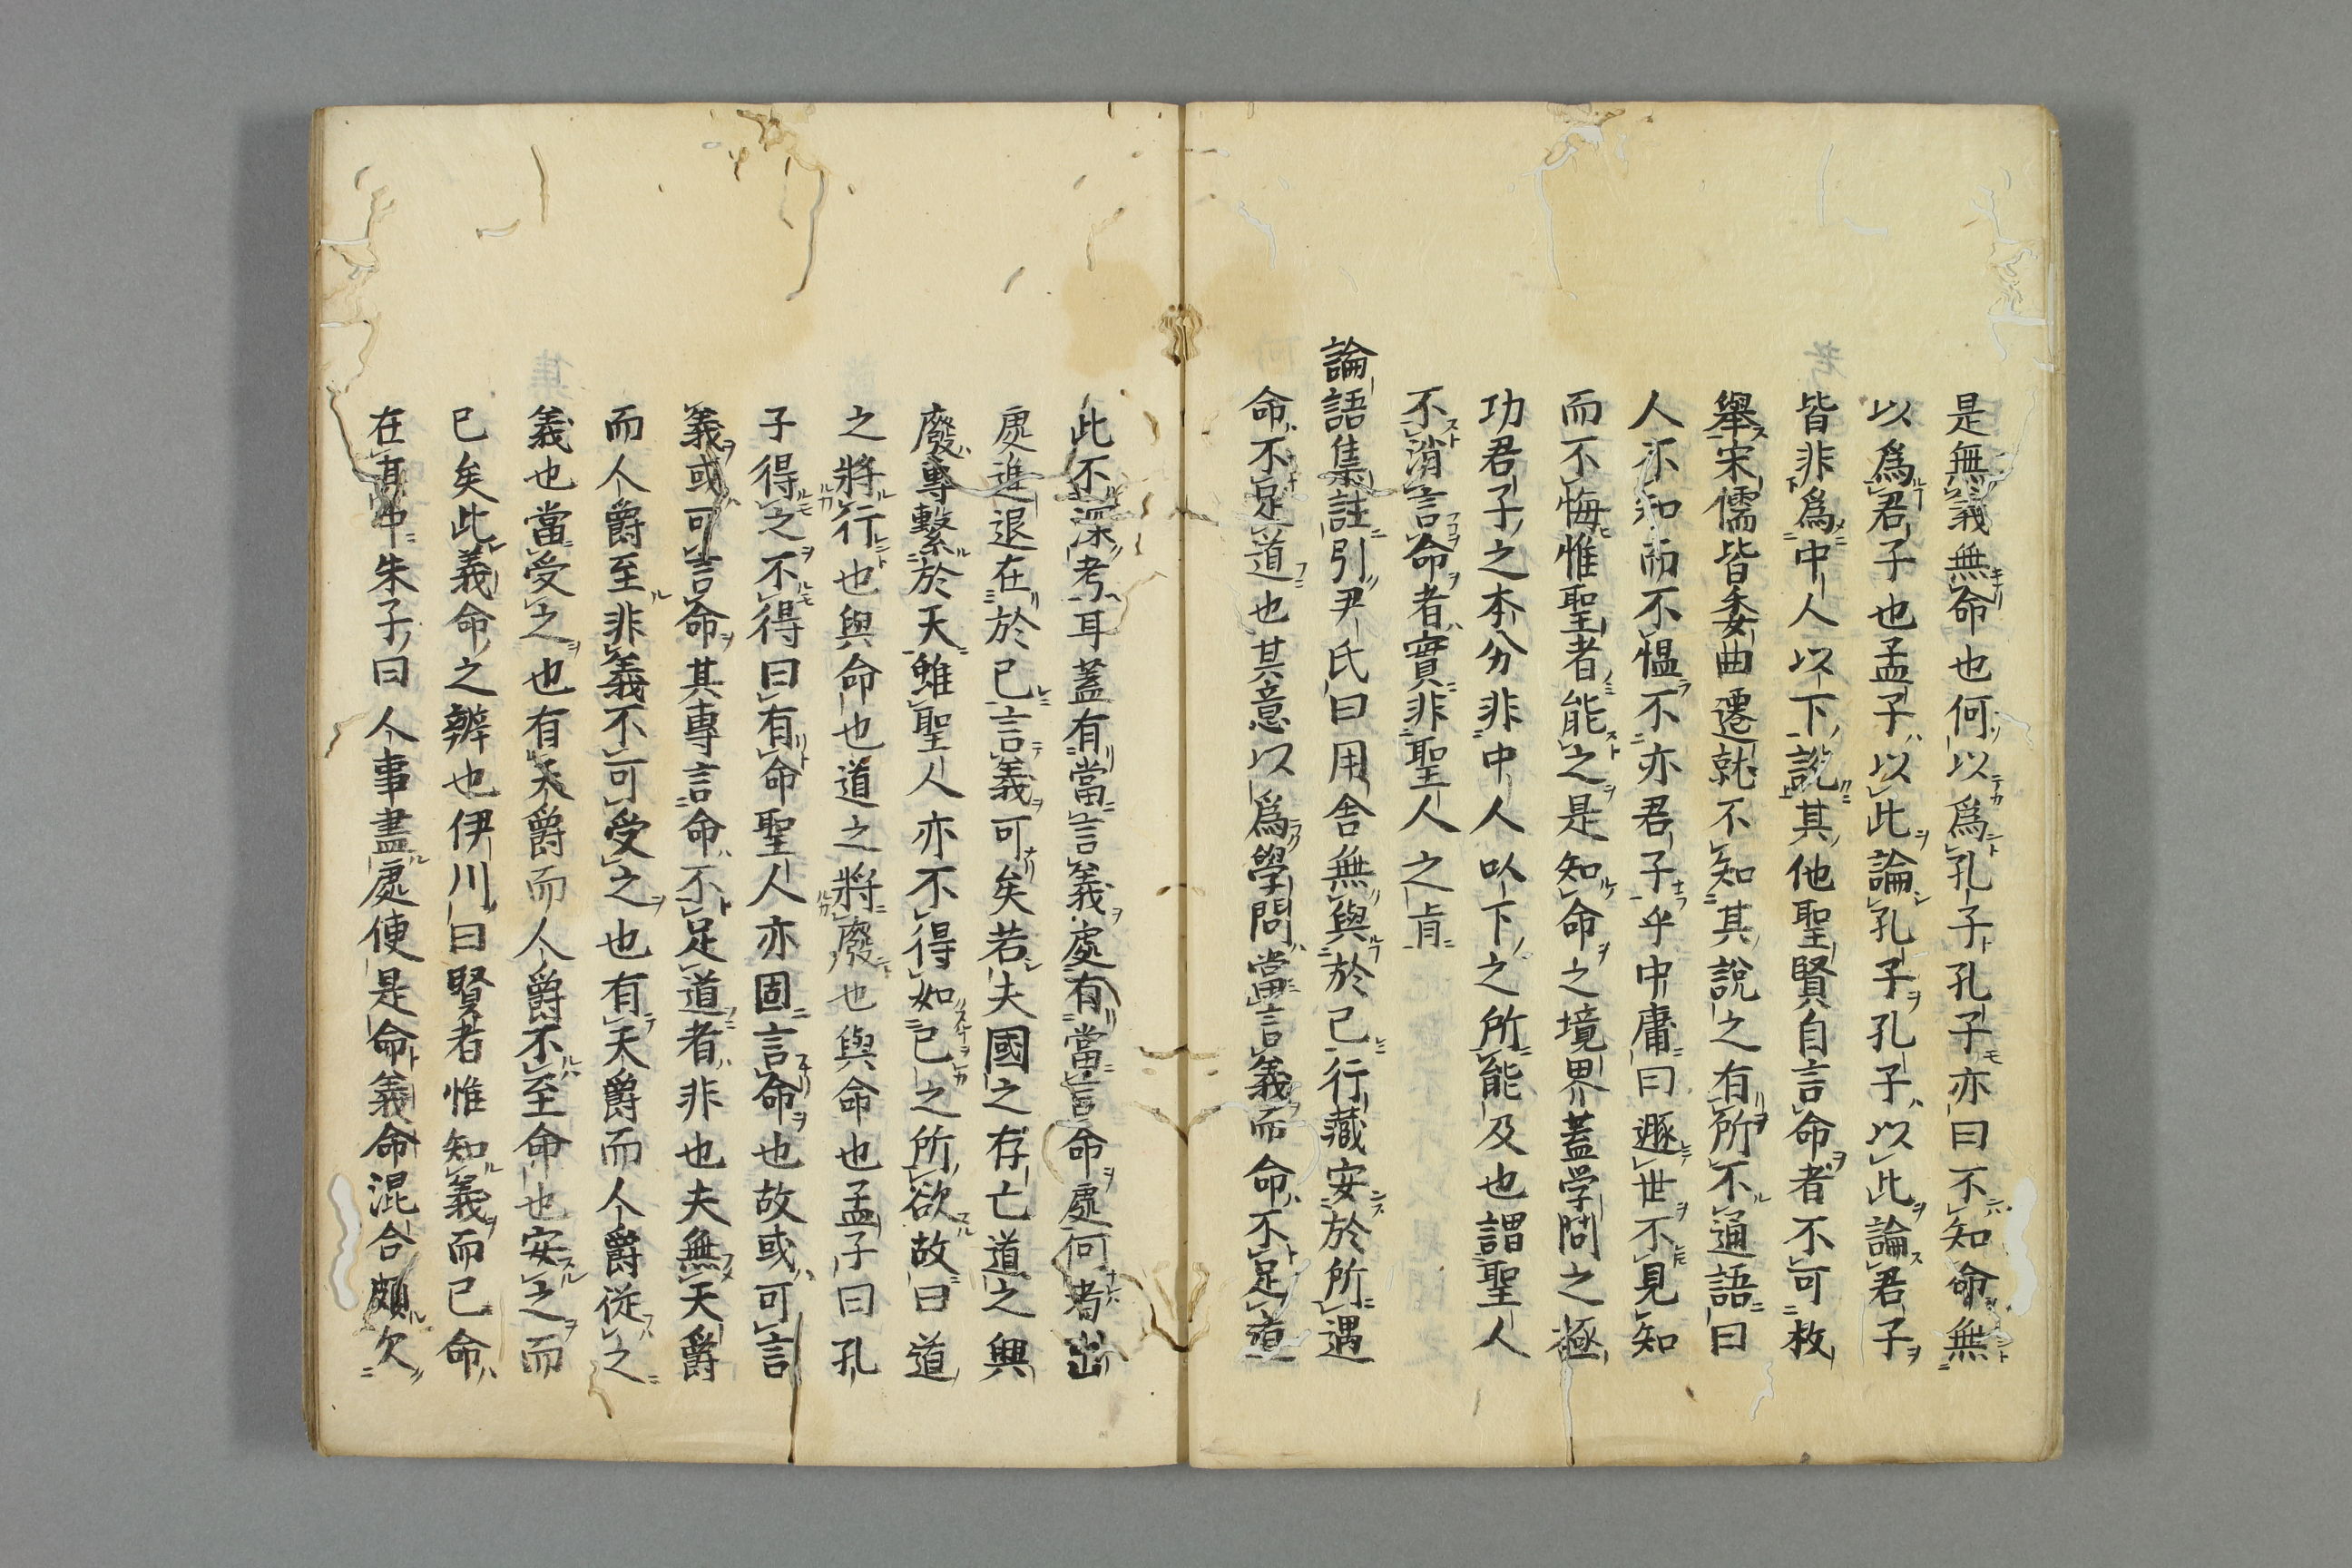 是無義無命也何以爲孔子孔子亦曰不知命無
以爲君子也孟子以此論孔子孔子以此論君子
皆非爲中人以下說其他聖賢自言命者不可枚
舉宋儒皆委曲遷就不知其說之有所不通語曰
人不知而不慍不亦君子乎中庸曰遯世不見知
而不悔惟聖者能之是知命之境界蓋学問之極
功君子之本分非中人以下之所能及也謂聖人
不消言命者實非聖人之肯
論語集註引尹氏曰用舍無與於己行藏安於所遇
命不足道也其意以爲學問當言義而命不足道
此不深考耳蓋有當言義處有當言命處何者出
處進退在於己言義可矣若夫國之存亡道之興
廢專繫於天雖聖人亦不得如己之所欲故曰道
之將行也與命也道之將廢也與命也孟子曰孔
子得之不得曰有命聖人亦固言命也故或可言
義或可言命其專言命不足道者非也夫無天爵
而人爵至非義不可受之也有天爵而人爵從之
義也當受之也有天爵而人爵不至命也安之而
已矣此義命之辨也伊川曰賢者惟知義而已命
在其中朱子曰人事盡處便是命義命混合頗欠